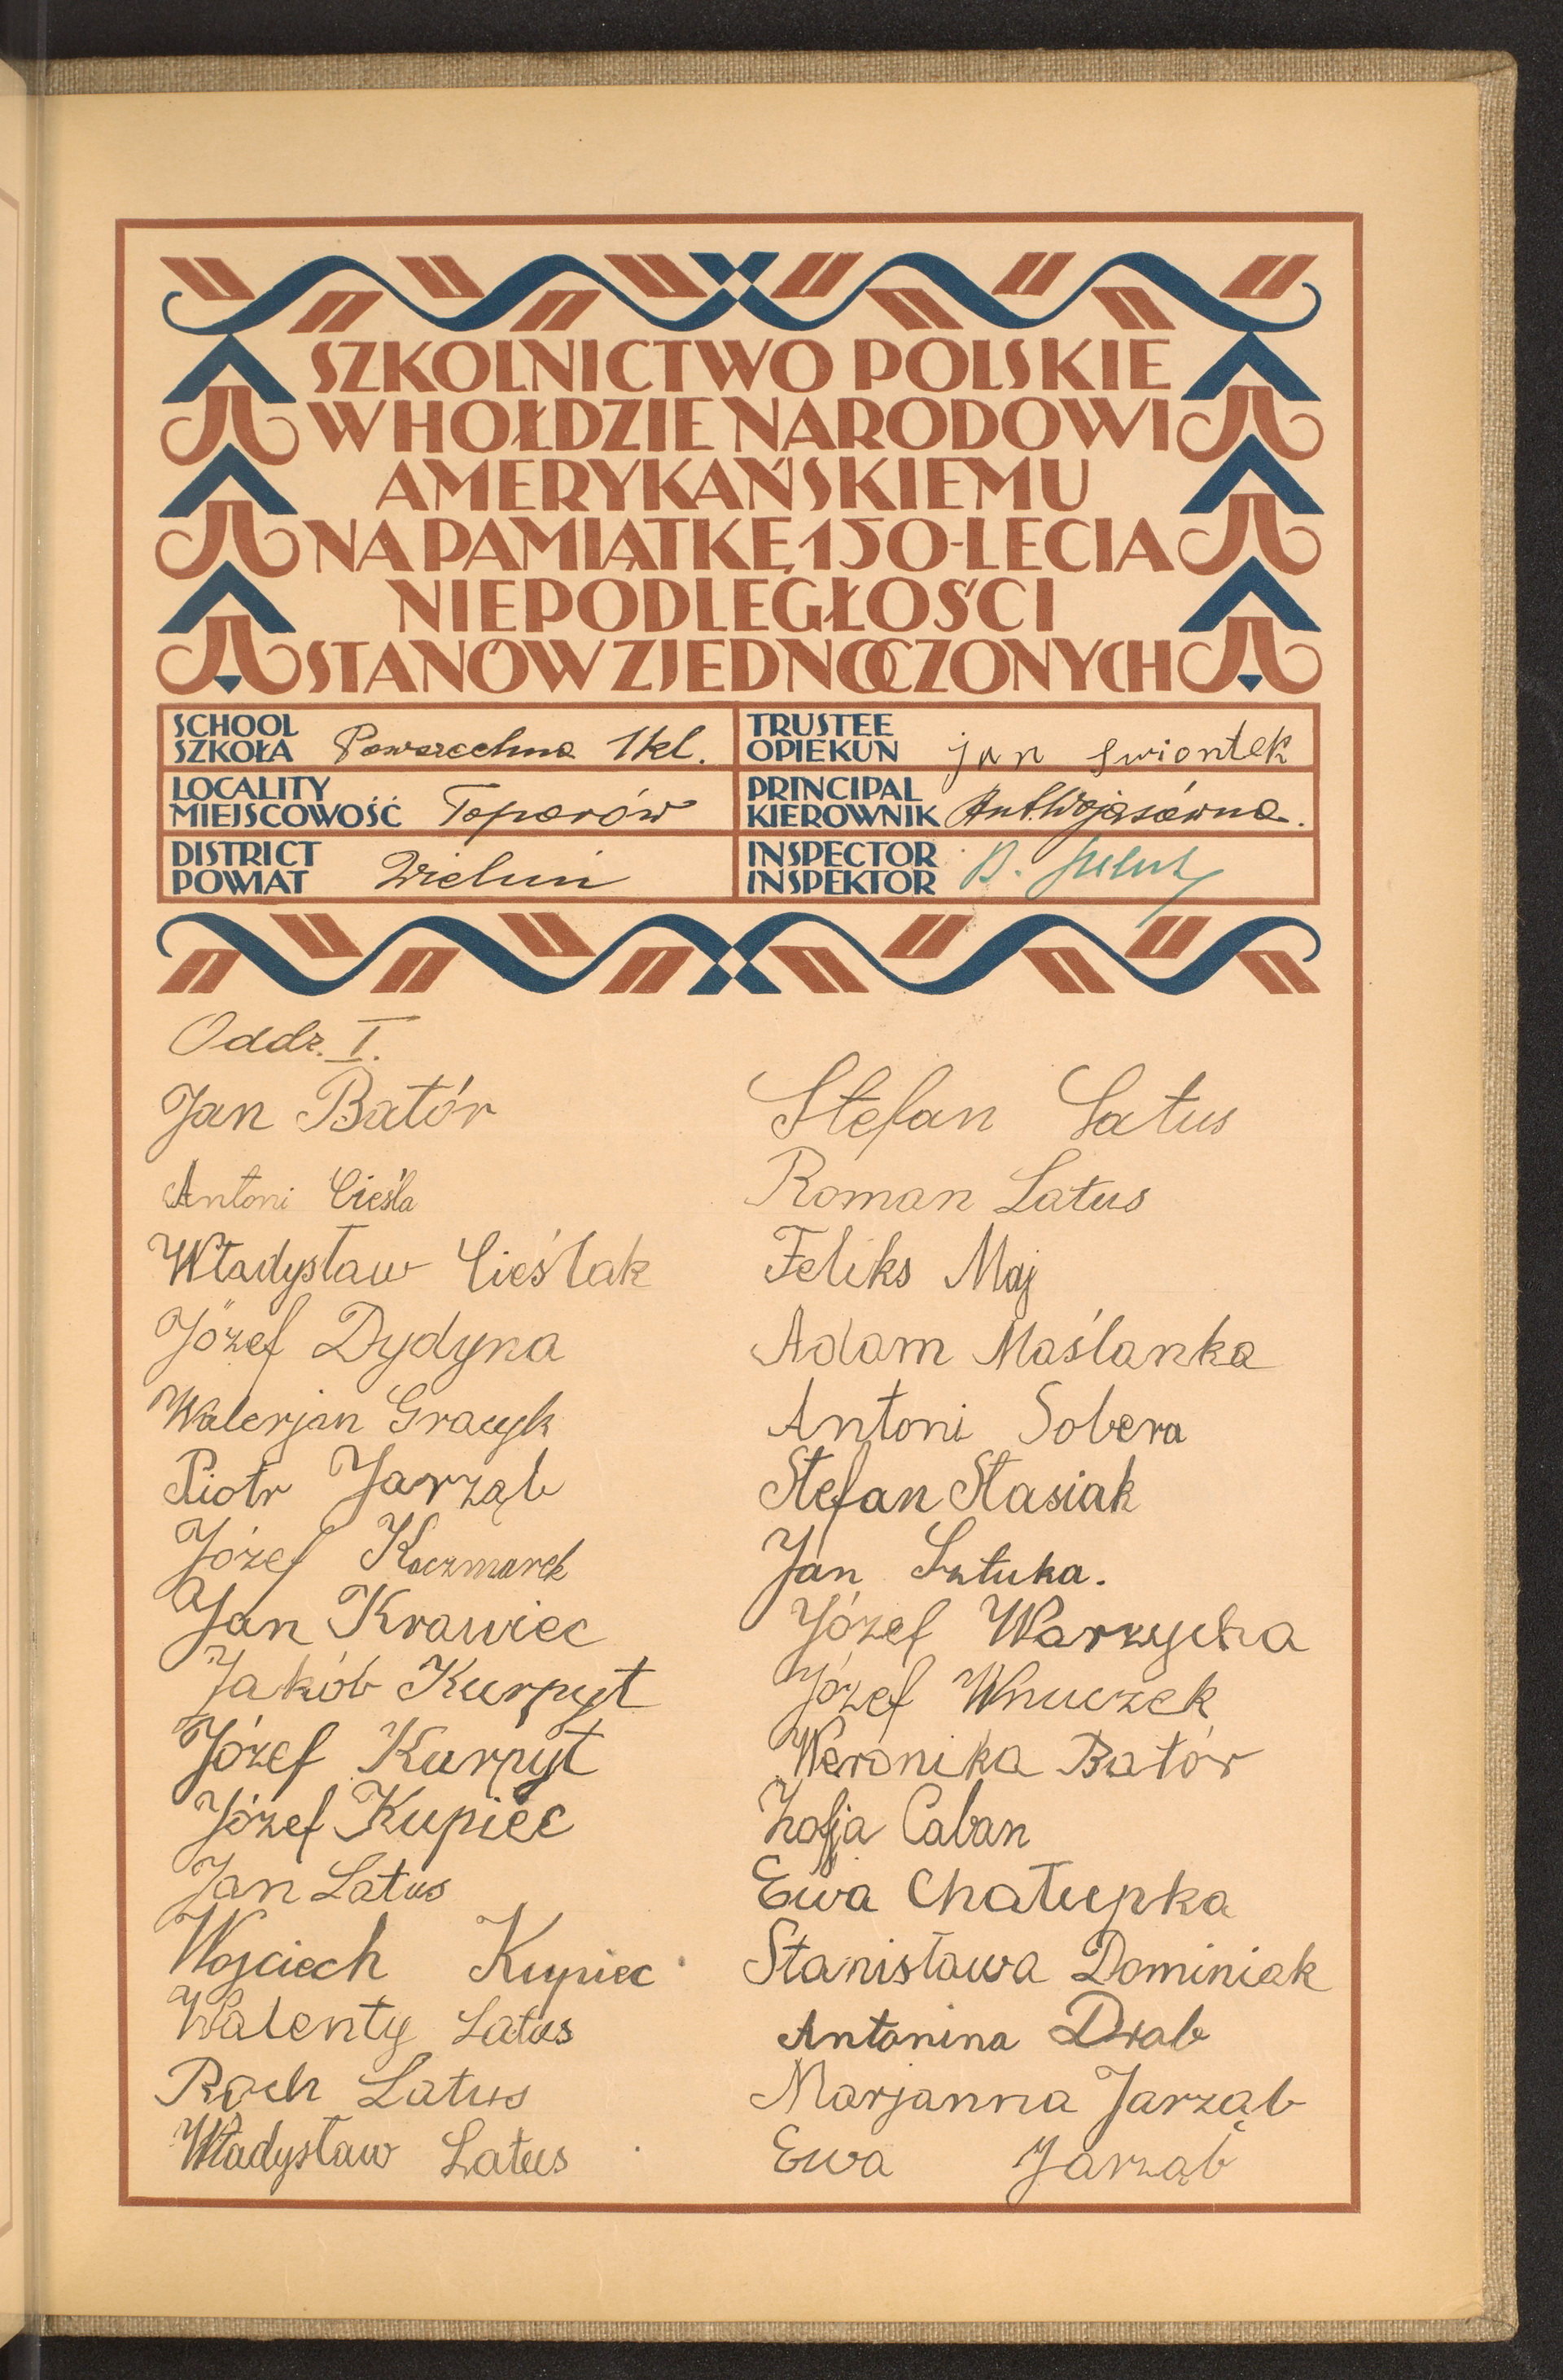 SZKOLNICTWO POLSKIE
W HOŁDZIE NARODOWI
AMERYKAŃSKIEMU
NA PAMIĄTKĘ 150-LECIA
NIEPODLEGŁOŚCI
STANÓW ZJEDNOCZONYCH
SCHOOL
SZKOŁA Powszechna 1 kl.
TRUSTEE
OPIEKUN jan Swiontek
LOCALITY
MIEJSCOWOŚĆ Toporów
PRINCIPAL
KIEROWNIK Ant. Wojasówna.
DISTRICT
POWIAT Wieluń
INSPECTOR
INSPEKTOR B.
Oddz. I.
Jan Batór
Antoni Cieśla
Władysław Cieślak
Józef Dydyna
Walerjan Gracyk
Piotr Jarząb
Józef Kaczmarek
Jan Krawiec
Jakób Kurpyt
Józef Kurpyt
Józef Kupiec
Jan Latus
Wojciech Kupiec
Walenty Latus
Roch Latus
Władysław Latus
Stefan Latus
Roman Latus
Feliks Maj
Adam Maślanka
Antoni Sobera
Stefan Stasiak
Jan Sztuka.
Józef Warzycha
Józef Wnuczek
Weronika Batór
Zofja Caban
Ewa Chałupka
Stanisława Dominiak
Antonina Drab
Marjanna Jarząb
Ewa Jarząb